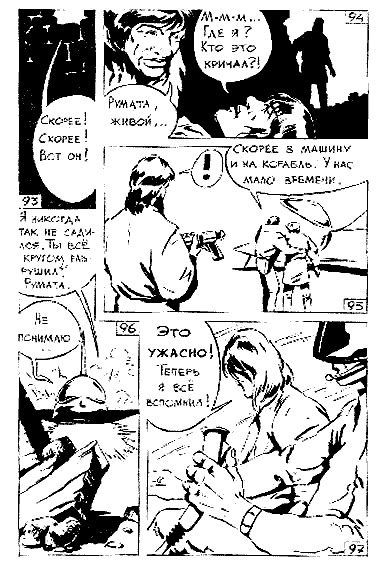 Скорее!
Скорее!
Вот он!
93
М-м-м...
Где я?
Кто это
кричал?!
94
Румата,
живой...
!
Скорее в машину
и на корабль. У нас
мало времени.
95
Я никогда
так не сади-
лся. Ты всё
кругом раз-
рушил,
Румата.
Не
понимаю
96
Это
ужасно!
Теперь
я всё
вспомнил!
97